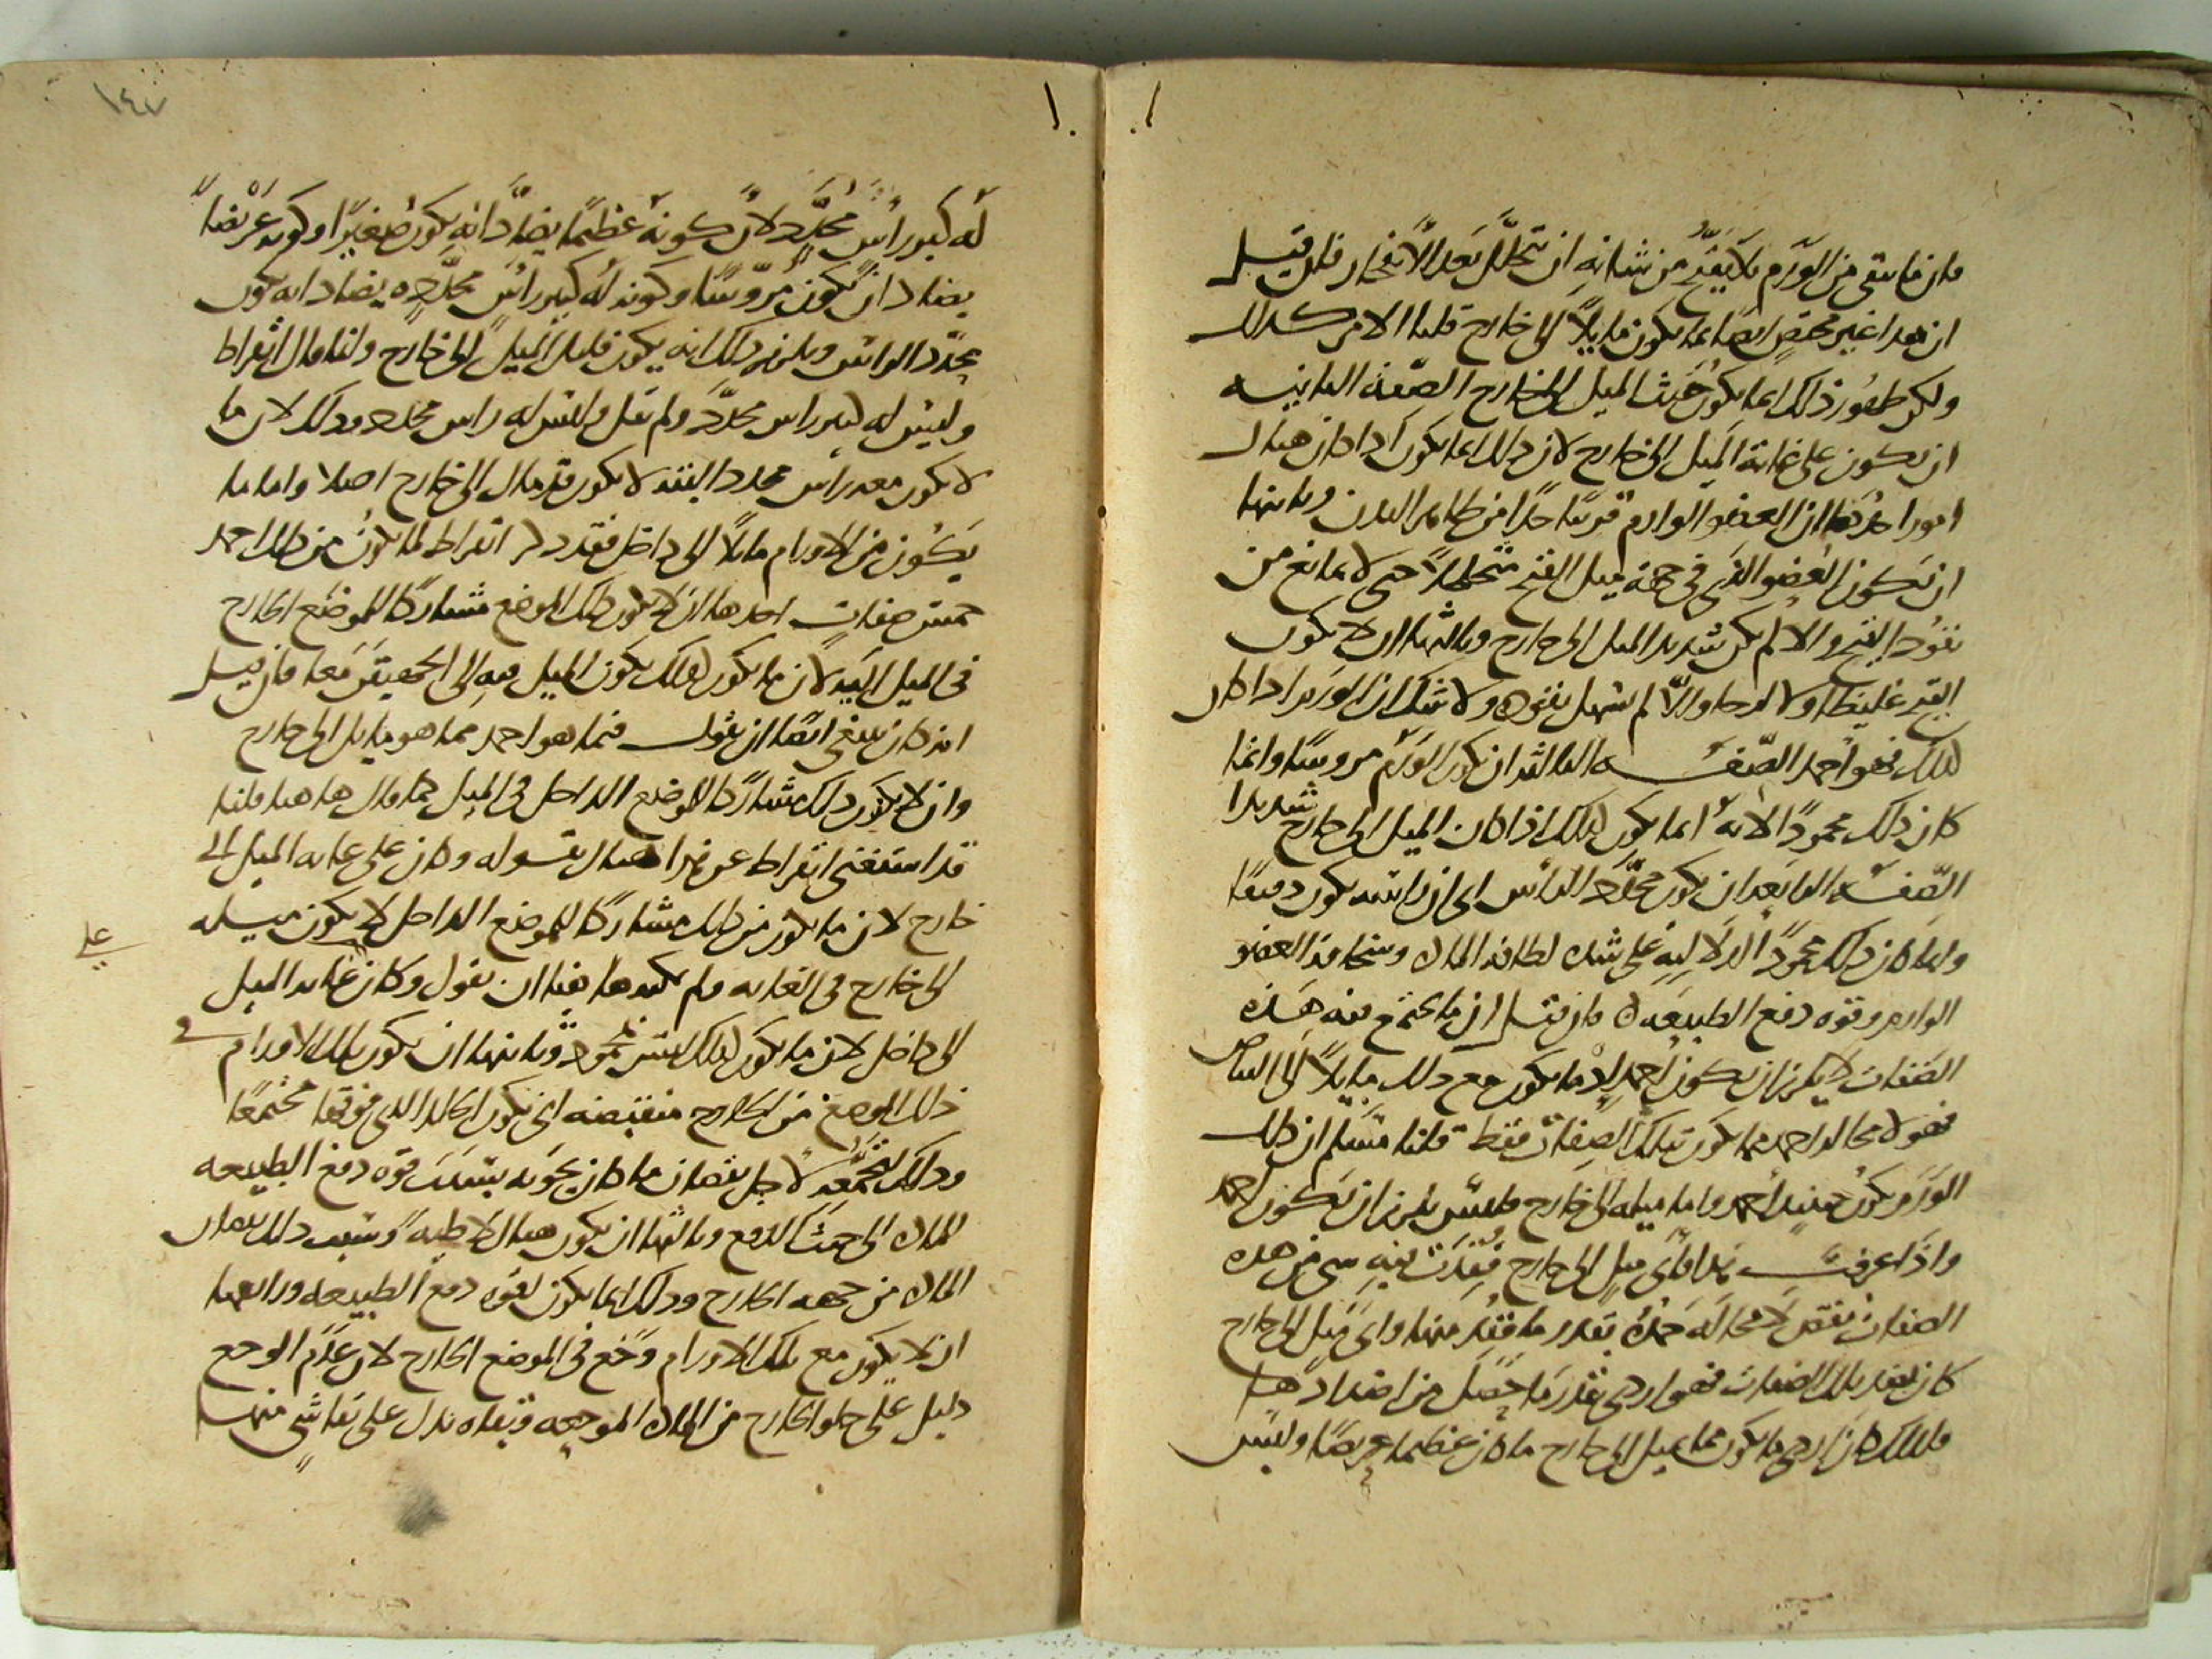 فان ما بقي من الورم بلا تقيح من شانه ان يتحلل بعد الانفجار فان قيل
ان هذا غير مختص ايضا بما يكون مايلا الى خارج قلنا الامر كذلك
ولكن ظهور ذلك انما يكون حيث الميل الى خارج الصفة الثانية
ان يكون على غاية الميل الى خارج لان ذلك انما يكون اذا كان هناك
امور احدها ان العضو الوارم قريبا جدا من ظاهر البدن وثانيها
ان يكون العضو الذي في جهة ميل القيح متخلخلا حتى لا يمانع من
نفوذ القيح والا لم يكن شديد الميل الى خارج وثالثها ان لا يكون
القيح غليظا ولا لزجا والا لم يسهل نفوذه ولا شك ان الورم اذا كان
كذلك فهو احمد الصفة الثالثة ان يكون الورم مروسا وانما
كان ذلك محمودا لانه انما يكون كذلك اذا كان الميل الى خارج شديدا
الصفة الرابعة ان يكون محدد الراس اي ان راسه يكون دقيقا
وانما كان ذلك محمودا لدلالته على شدة لطافة المادة وسخافة العضو
الوارم وقوة دفع الطبيعة فان قيل ان ما يجتمع فيه هذه
الصفات لا يلزم ان يكون احمد اذ ما يكون مع ذلك مايلا الى الباطن
فهو لا محالة احمد مما يكون بتلك الصفات فقط قلنا مسلم ان ذلك
الورم يكون حينئذ احمد واما ميله الى خارج فليس يلزم ان يكون احمد
واذا عرفت هذا فاي ميل الى خارج فقدت فيه شي من هذه
الصفات نقص لا محالة حمده بقدر ما فقد منها واي ميل الى خارج
كان بضد تلك الصفات فهو اردى بقدر ما حصل من اضدادها
فلذلك كان اردى ما يكون مما يميل الى خارج ما كان عظيما عريضا وليس
١٤٧
له كبير راس محدد لان كونه عظيما يضاد انه يكون صغيرا وكونه عريضا
يضاد ان يكون مروسا وكونه له كبير راس محدد يضاد انه يكون
محدد الراس ويلزم ذلك انه يكون قليل الميل الى خارج وانما قال ابقراط
وليس له كبير راس محدد ولم يقل وليس له راس محدد وذلك لان ما
لا يكون معه راس محدد البتة لا يكون قد مال الى خارج اصلا واما ما
يكون من الاورام مايلا الى داخل فقد ذكر ابقراط لما يكون من ذلك احمد
خمس صفات احدها ان لا يكون ذلك الموضع مشاركا للموضع الخارج
في الميل اليه لان ما يكون كذلك يكون الميل فيه الى الجهتين معا فان قيل
انه كان ينبغي ايضا ان يقول فيما هو احمد مما هو مايل الى خارج
وان لا يكون ذلك مشاركا للموضع الداخل في الميل كما قال هاهنا قلنا
قد استغنى ابقراط عن هذا هناك بقوله وكان على غاية الميل الى
خارج لان ما يكون من ذلك مشاركا للموضع الداخل لا يكون ميله
الى خارج في الغاية ولم يمكنه هاهنا ان يقول وكان غاية الميل
الى داخل لان ما يكون كذلك ليس بمحمود وثانيها ان يكون تلك الاورام في
ذلك الموضع من الخارج منقبضة اي يكون الجلد الذي فوقها مجتمعا
وذلك التجمع لاجل نقصان ما كان يحويه بسبب قوة دفع الطبيعة
المادة الى حيث تدفع وثالثها ان يكون هناك لاطية وسبب ذلك نقصان
المادة من جهة الخارج وذلك انما يكون لقوة دفع الطبيعة ورابعها
ان لا يكون مع تلك الاورام وجع في الموضع الخارج لان عدم الوجع
دليل على خلو الخارج من المادة الموجعة وبقاه يدل على بقا شي منها